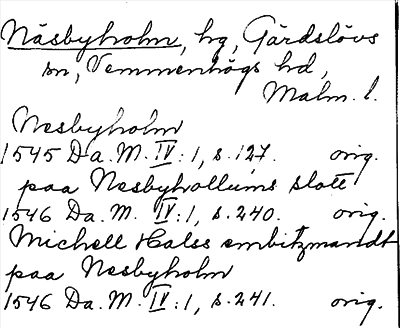 Näsbyholm, hg, Gärdslövs
sn, Vemmenhögs hd,
Malm. l.
Nesbyholm
1545 Da. M. IV:1, s. 127. orig.
paa Nesbyhollums slott
1546 Da. M. IV:1, s. 240. orig.
Michell Halss embitzmandt
paa Nesbyholm
1546 Da. M. IV:1, s. 241. orig.